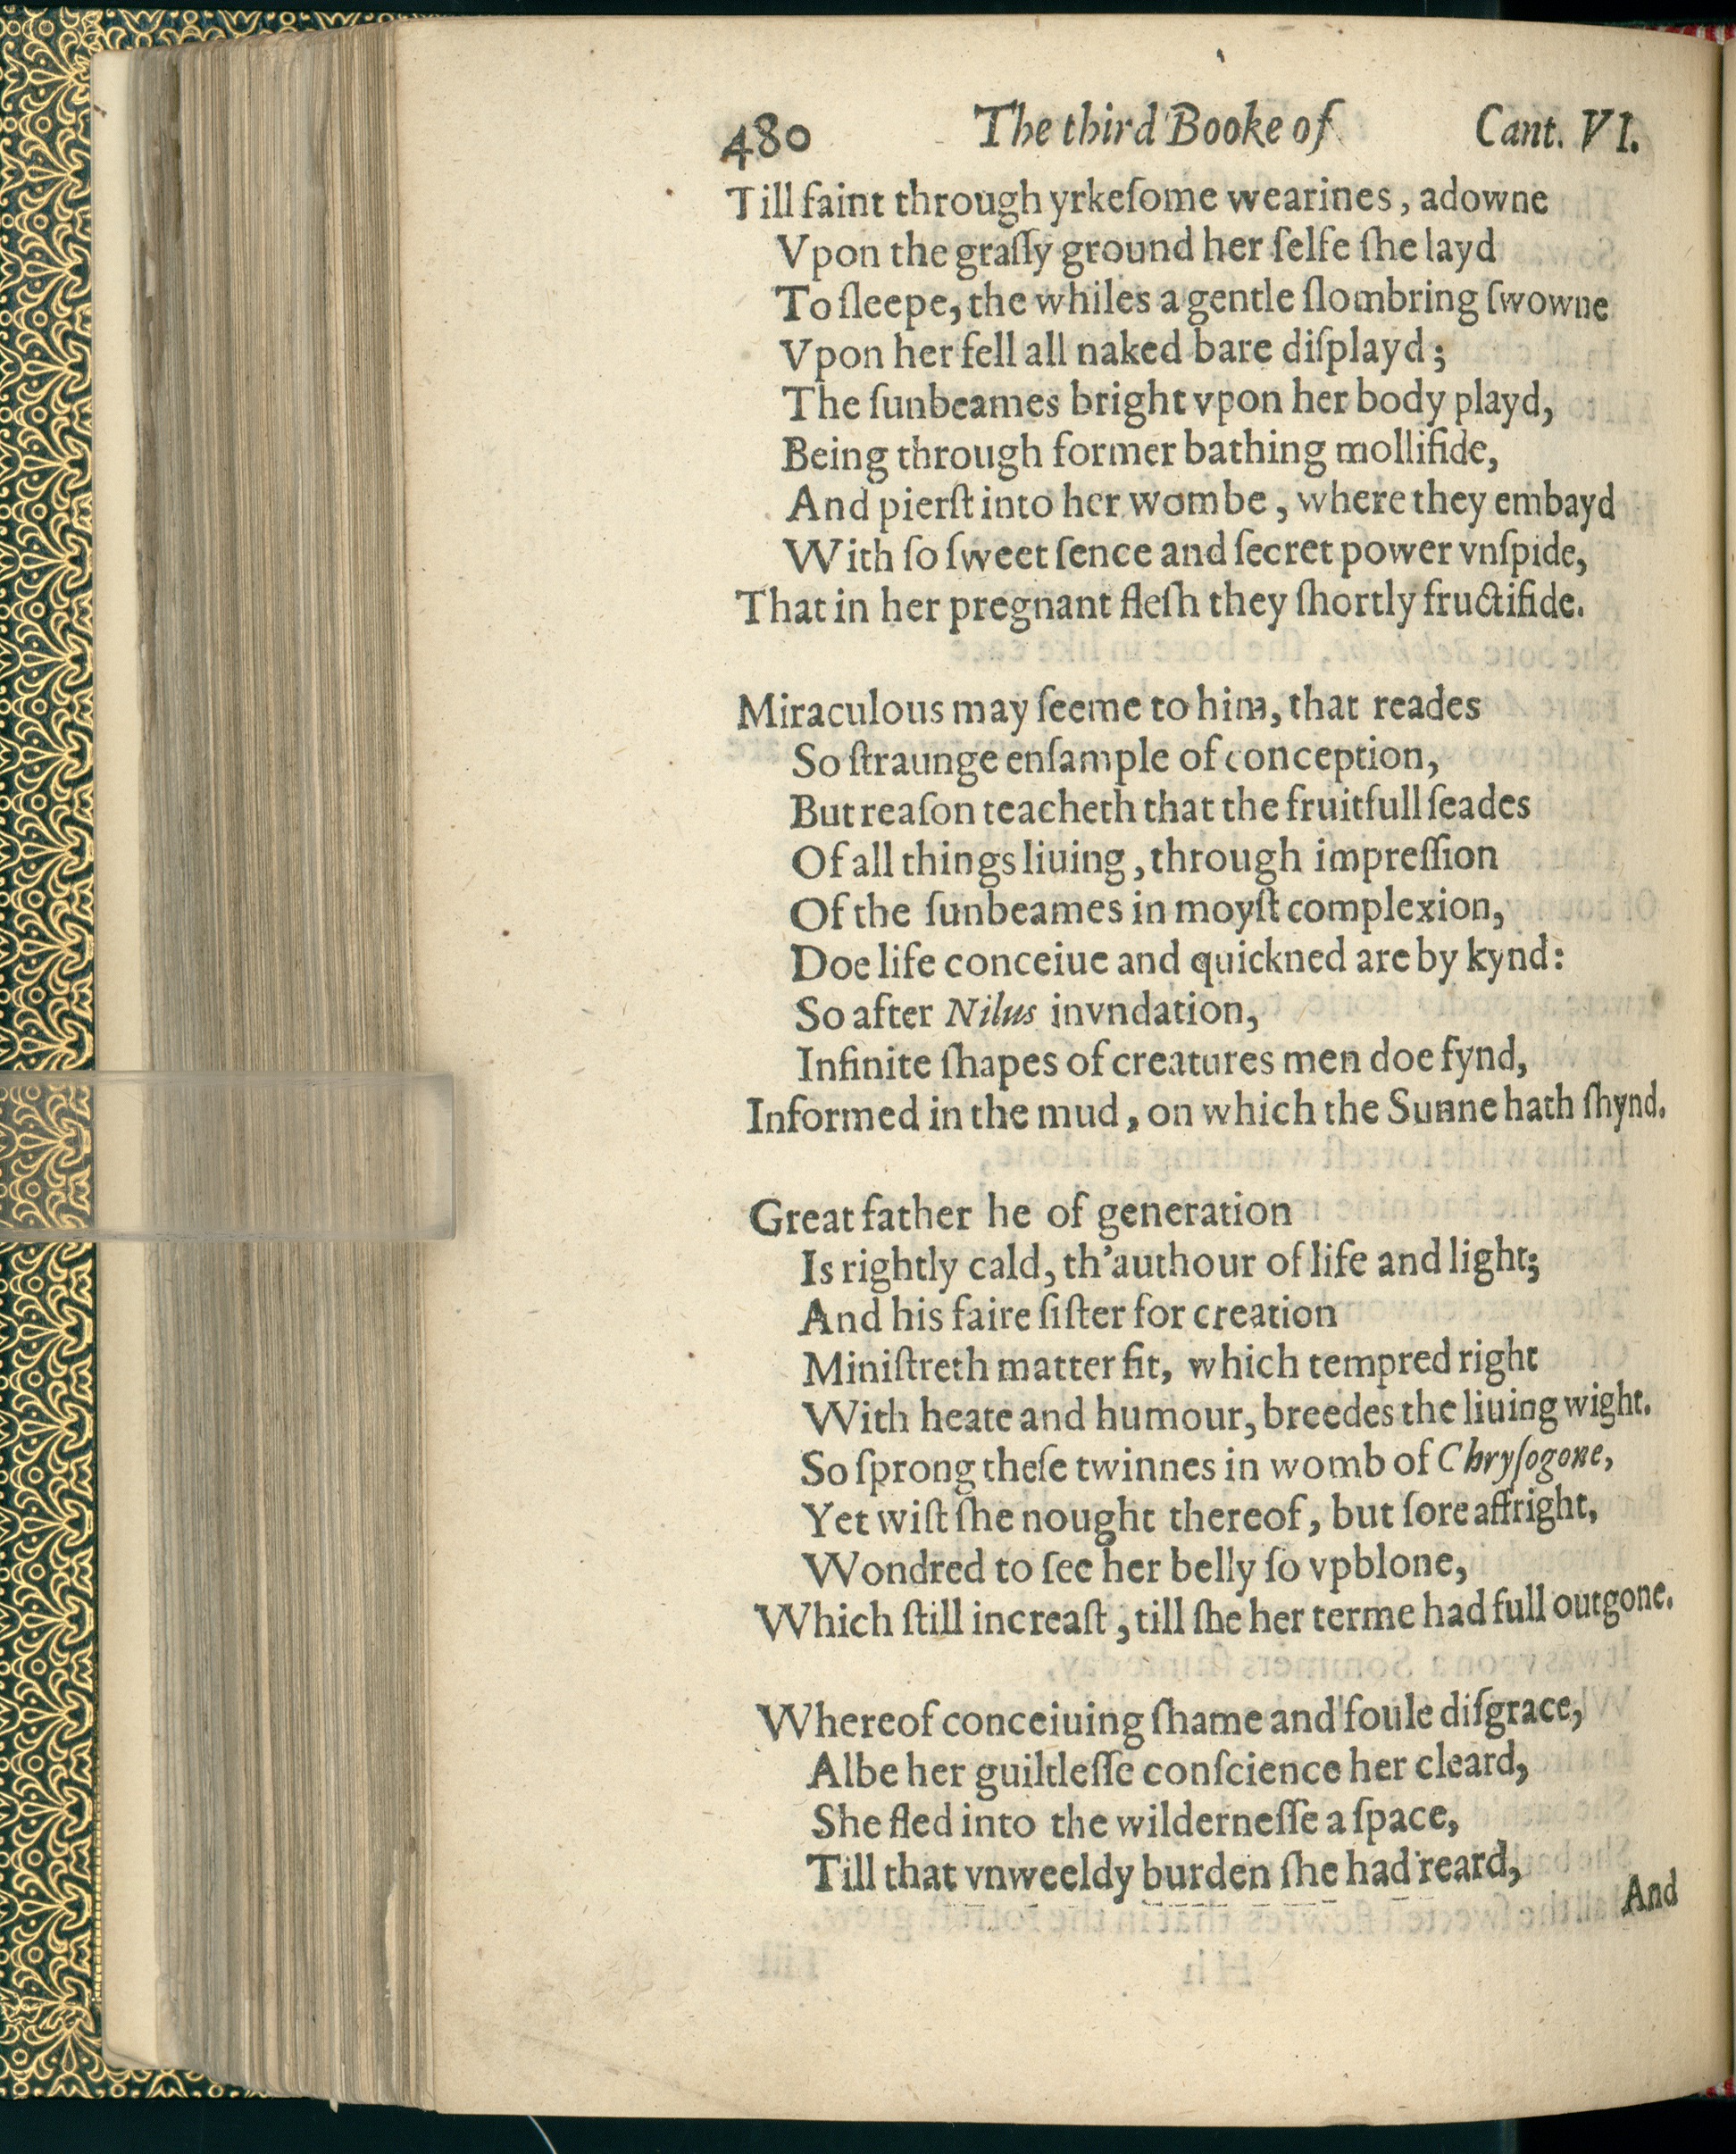 480 The third Booke of Cant. VI.
Till faint through yrkeſome wearines, adowne
Vpon the graſſy ground her ſelfe ſhe layd
To ſleepe, the whiles a gentle ſlombring ſwowne
Vpon her fell all naked bare diſplayd;
The ſunbeames bright vpon her body playd,
Being through former bathing mollifide,
And pierſt into her wombe, where they embayd
With ſo ſweet ſence and ſecret power vnſpide,
That in her pregnant fleſh they ſhortly fructifide.
Miraculous may ſeeme to him, that reades
So ſtraunge enſample of conception,
But reaſon teacheth that the fruitfull ſeades
Of all things liuing, through impreſſion
Of the ſunbeames in moyſt complexion,
Doe life conceiue and quickned are by kynd:
So after Nilus invndation,
Infinite ſhapes of creatures men doe fynd,
Informed in the mud, on which the Sunne hath ſhynd.
Great father he of generation
Is rightly cald, th'authour of life and light;
And his faire ſiſter for creation
Miniſtreth matter fit, which tempred right
With heate and humour, breedes the liuing wight.
So ſprong theſe twinnes in womb of Chryſogone,
Yet wiſt ſhe nought thereof, but ſore affright,
Wondred to ſee her belly ſo vpblone,
Which ſtill increaſt, till ſhe her terme had full outgone.
Whereof conceiuing ſhame and foule diſgrace,
Albe her guiltleſſe conſcience her cleard,
She fled into the wilderneſſe a ſpace,
Till that vnweeldy burden ſhe had reard,
And